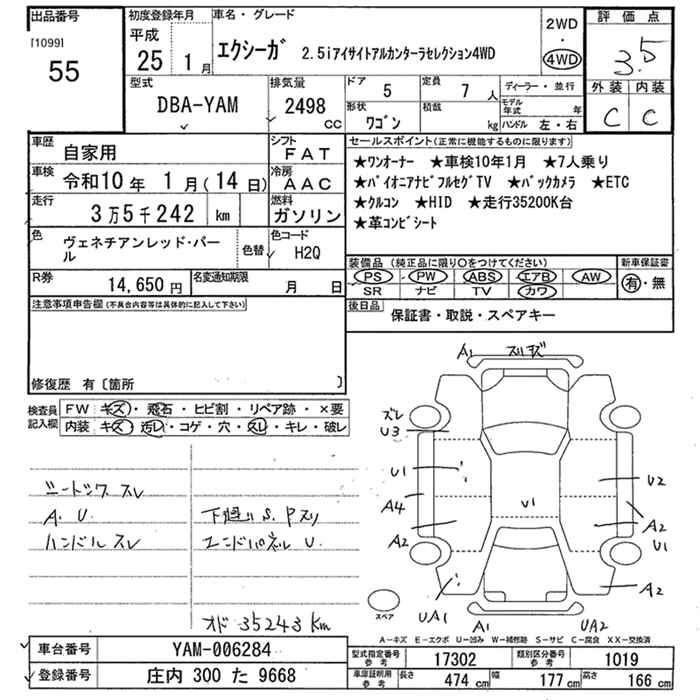 出品番号
[1099]
55
初度登録年月
平成
25 1月
車名・グレード
エクシーガ 2.5iアイサイトアルカンターラセレクション4WD
2WD
・
4WD
評価点
3.5
外装 内装
C C
型式
DBA-YAM
排気量
2498
cc
ドア
5
定員
7人
形状
ワゴン
積載
kg
ディーラー・並行
モデル年式 年
ハンドル 左・右
車歴
自家用
シフト
FAT
車検
令和10年 1月(14日)
冷房
AAC
走行
3万5千242 km
燃料
ガソリン
色
ヴェネチアンレッド・パール
色替
色コード
H2Q
R券
14,650円
名変通知期限
月 日
セールスポイント(正常に機能するものに限ります)
★ワンオーナー ★車検10年1月 ★7人乗り
★パイオニアナビフルセグTV ★バックカメラ ★ETC
★クルコン ★HID ★走行35200K台
★革コンビシート
装備品(純正品に限り○をつけてください)
PS PW ABS エアB AW
SR ナビ TV カワ
新車保証書
有・無
後日品
保証書・取説・スペアキー
注意事項申告欄(不具合内容等は具体的に記入して下さい)
修復歴 有〔箇所 〕
検査員記入欄
FW キズ・飛石・ヒビ割・リペア跡・×要
内装 キズ・汚レ・コゲ・穴・スレ・キレ・破レ
シートシワ スレ
A. U.
ハンドル スレ
下廻り S. Pスリ
エンドパネル U.
オド 35243km
A1 スリキズ
ズレ
U3
U1
A4
A2
U1
U2
A2
U1
A2
UA1
A1
UA2
スペア
A-キズ E-エクボ U-凹み W-補修跡 S-サビ C-腐食 XX-交換済
車台番号
YAM-006284
登録番号
庄内 300 た 9668
型式指定番号
参考
17302
類別区分番号
参考
1019
車庫証明用
参考
長さ
474 cm
幅
177 cm
高さ
166 cm